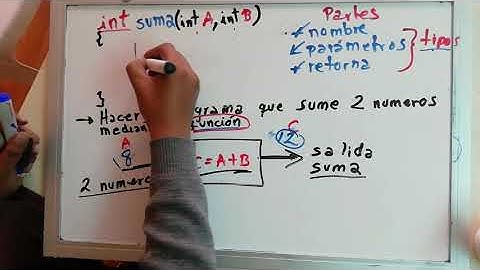 int suma(int A, int B)
{
Partes
nombre
parámetros
retorna
tipos
}
→ Hacer grama que sume 2 numeros
median función
A
8
C
12
= A+B
salida
suma
2 numer